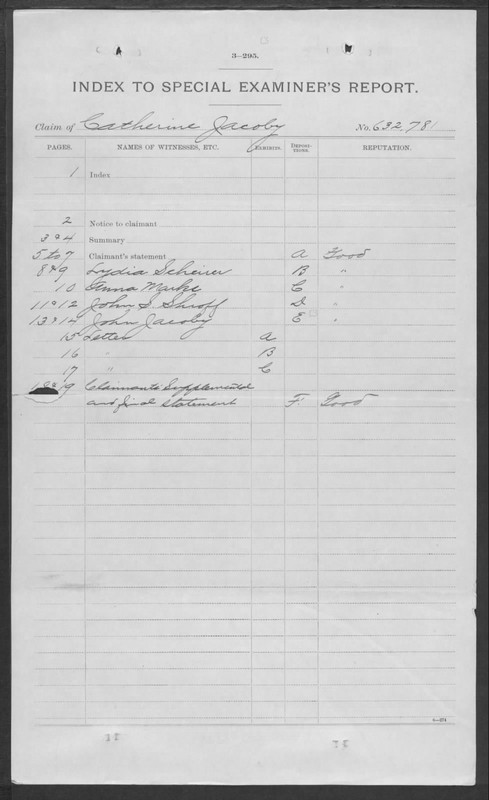 3—295.
INDEX TO SPECIAL EXAMINER'S REPORT.
Claim of Catherine Jacoby No. 632,781
PAGES. NAMES OF WITNESSES, ETC. EXHIBITS. DEPOSITIONS. REPUTATION.
1 Index
2 Notice to claimant
3 & 4 Summary
5 to 7 Claimant's statement A Good
8 & 9 Lydia Scheirer B "
10 Anna C "
11 & 12 John S. Shroff D "
13 & 14 John Jacoby E "
15 Letter A
16 " B
17 " C
19 Claimants Supplemental
and final statement F Good